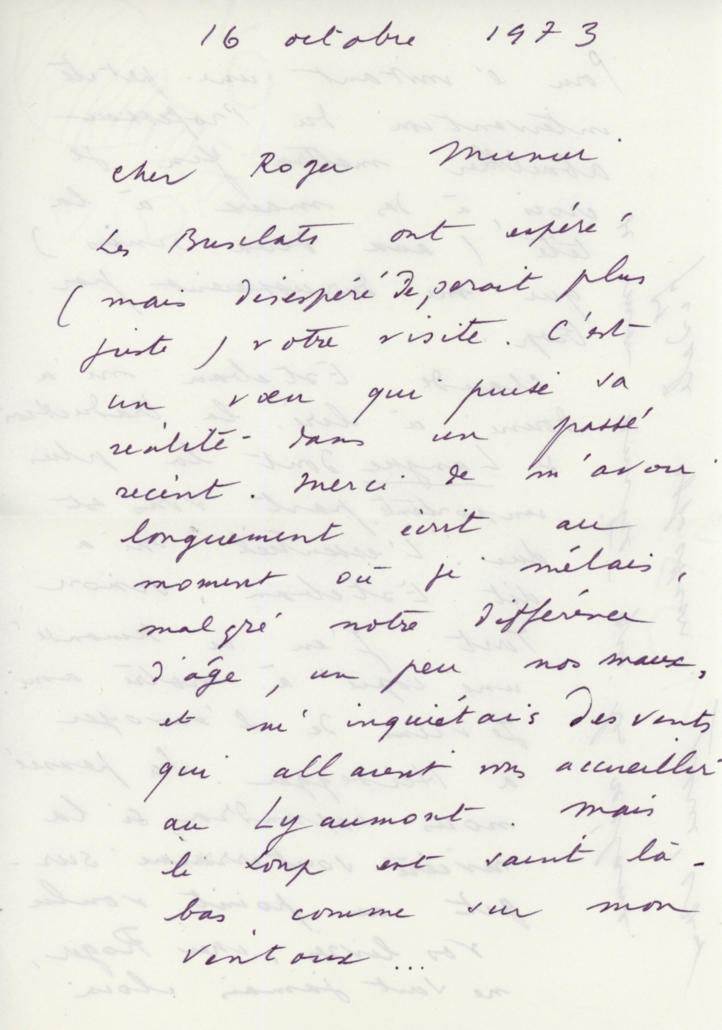 16 octobre 1973
cher Roger Munier.
Les Busclats ont espéré
(mais désespéré de, serait plus
juste) votre visite. C'est
un vœu qui puise sa
réalité dans un passé
récent. Merci de m'avoir
longuement écrit au
moment où je mêlais,
malgré notre différence
d'âge, un peu nos maux,
et m'inquiétais des vents
qui allaient vous accueillir
au Lyaumont. Mais
le Loup est saint là-
bas comme sur mon
Ventoux...